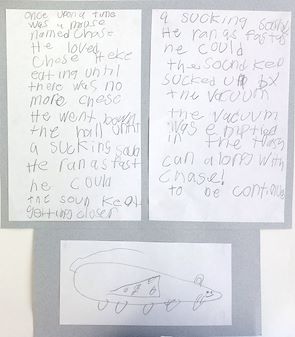 once upon a time
was a mouse
named Chase
He loved
Chese Heke
eating until
there was no
more chese
He went down
the hall until
a sucking soub
He ran as fast
he could
the soun kept
getting closer
a sucking
He ran as fastas
he could
the sound kep
sucked up by
the vacuum
the vacuum
was emptied
in the trash
can along with
Chase!
to be continue